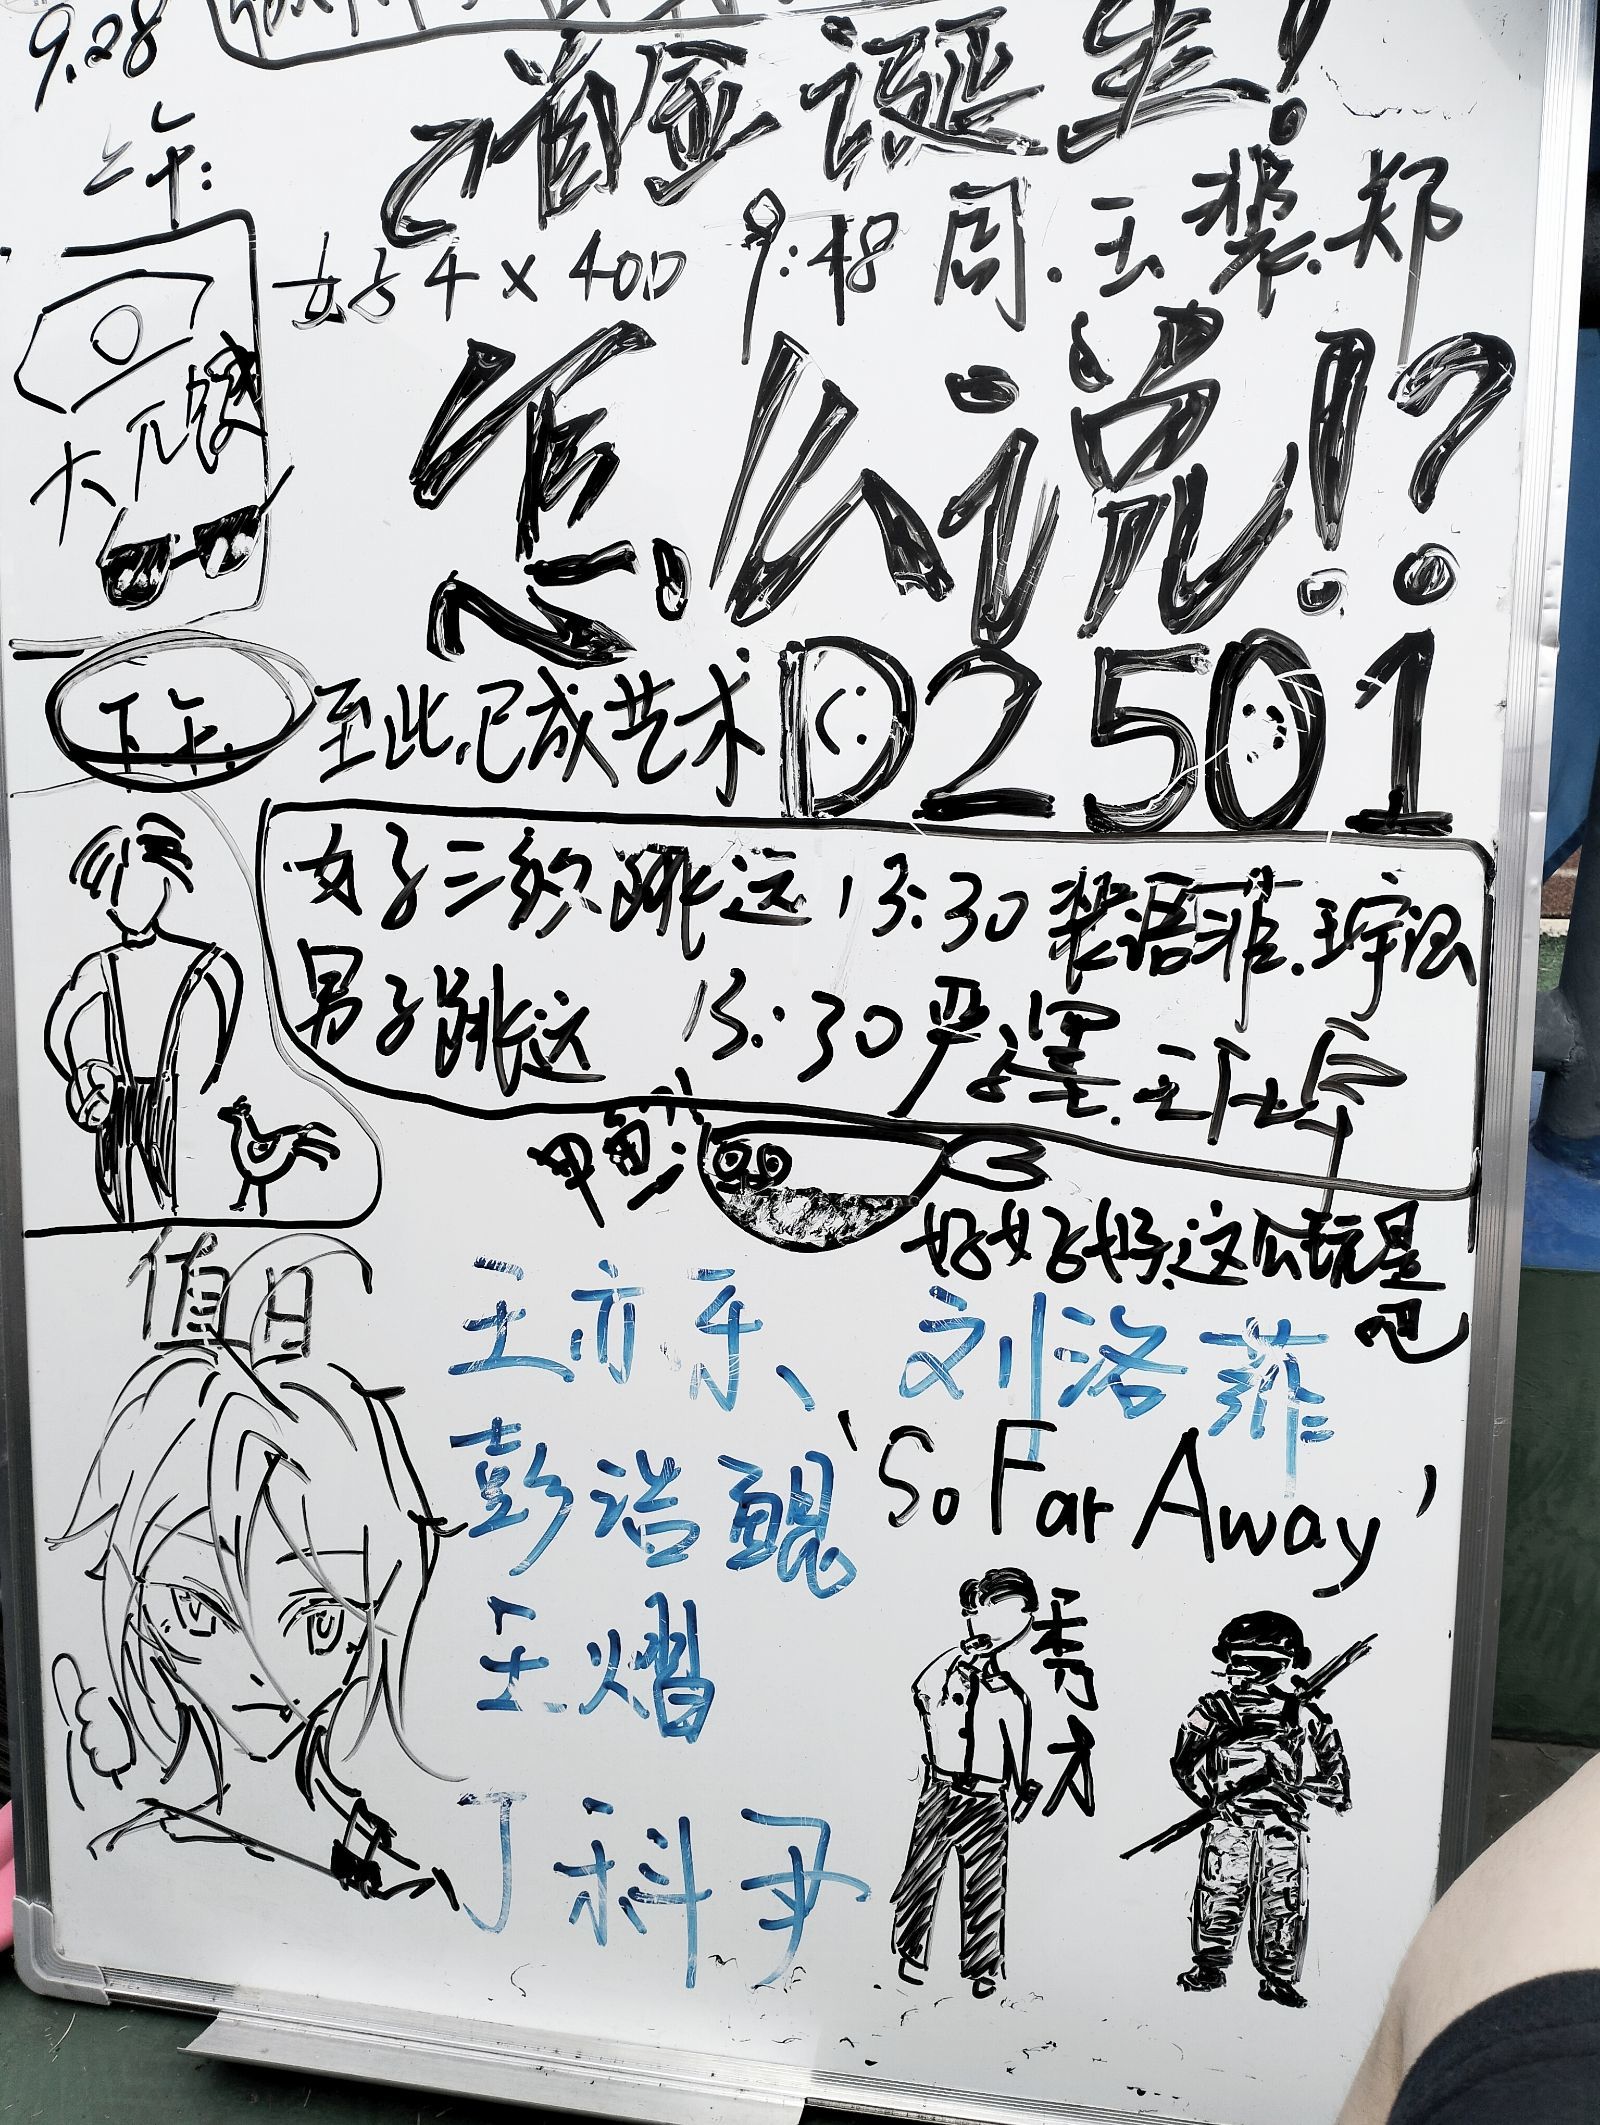 9.28
首金诞生!
上午:
女子4×400 9:48 周.王.裴.郑
怎么说!?
大几酸
下午.
至此,已成艺术 D2501
女子三级跳远 13:30 裴语菲.王宇涵
男子跳远 15:30 严墨.王
甲鱼
好好好好,这么玩是吧
值日
王亦乐、刘洛菲
彭浩鲲
'So Far Away'
王熠
秀才
丁科尹